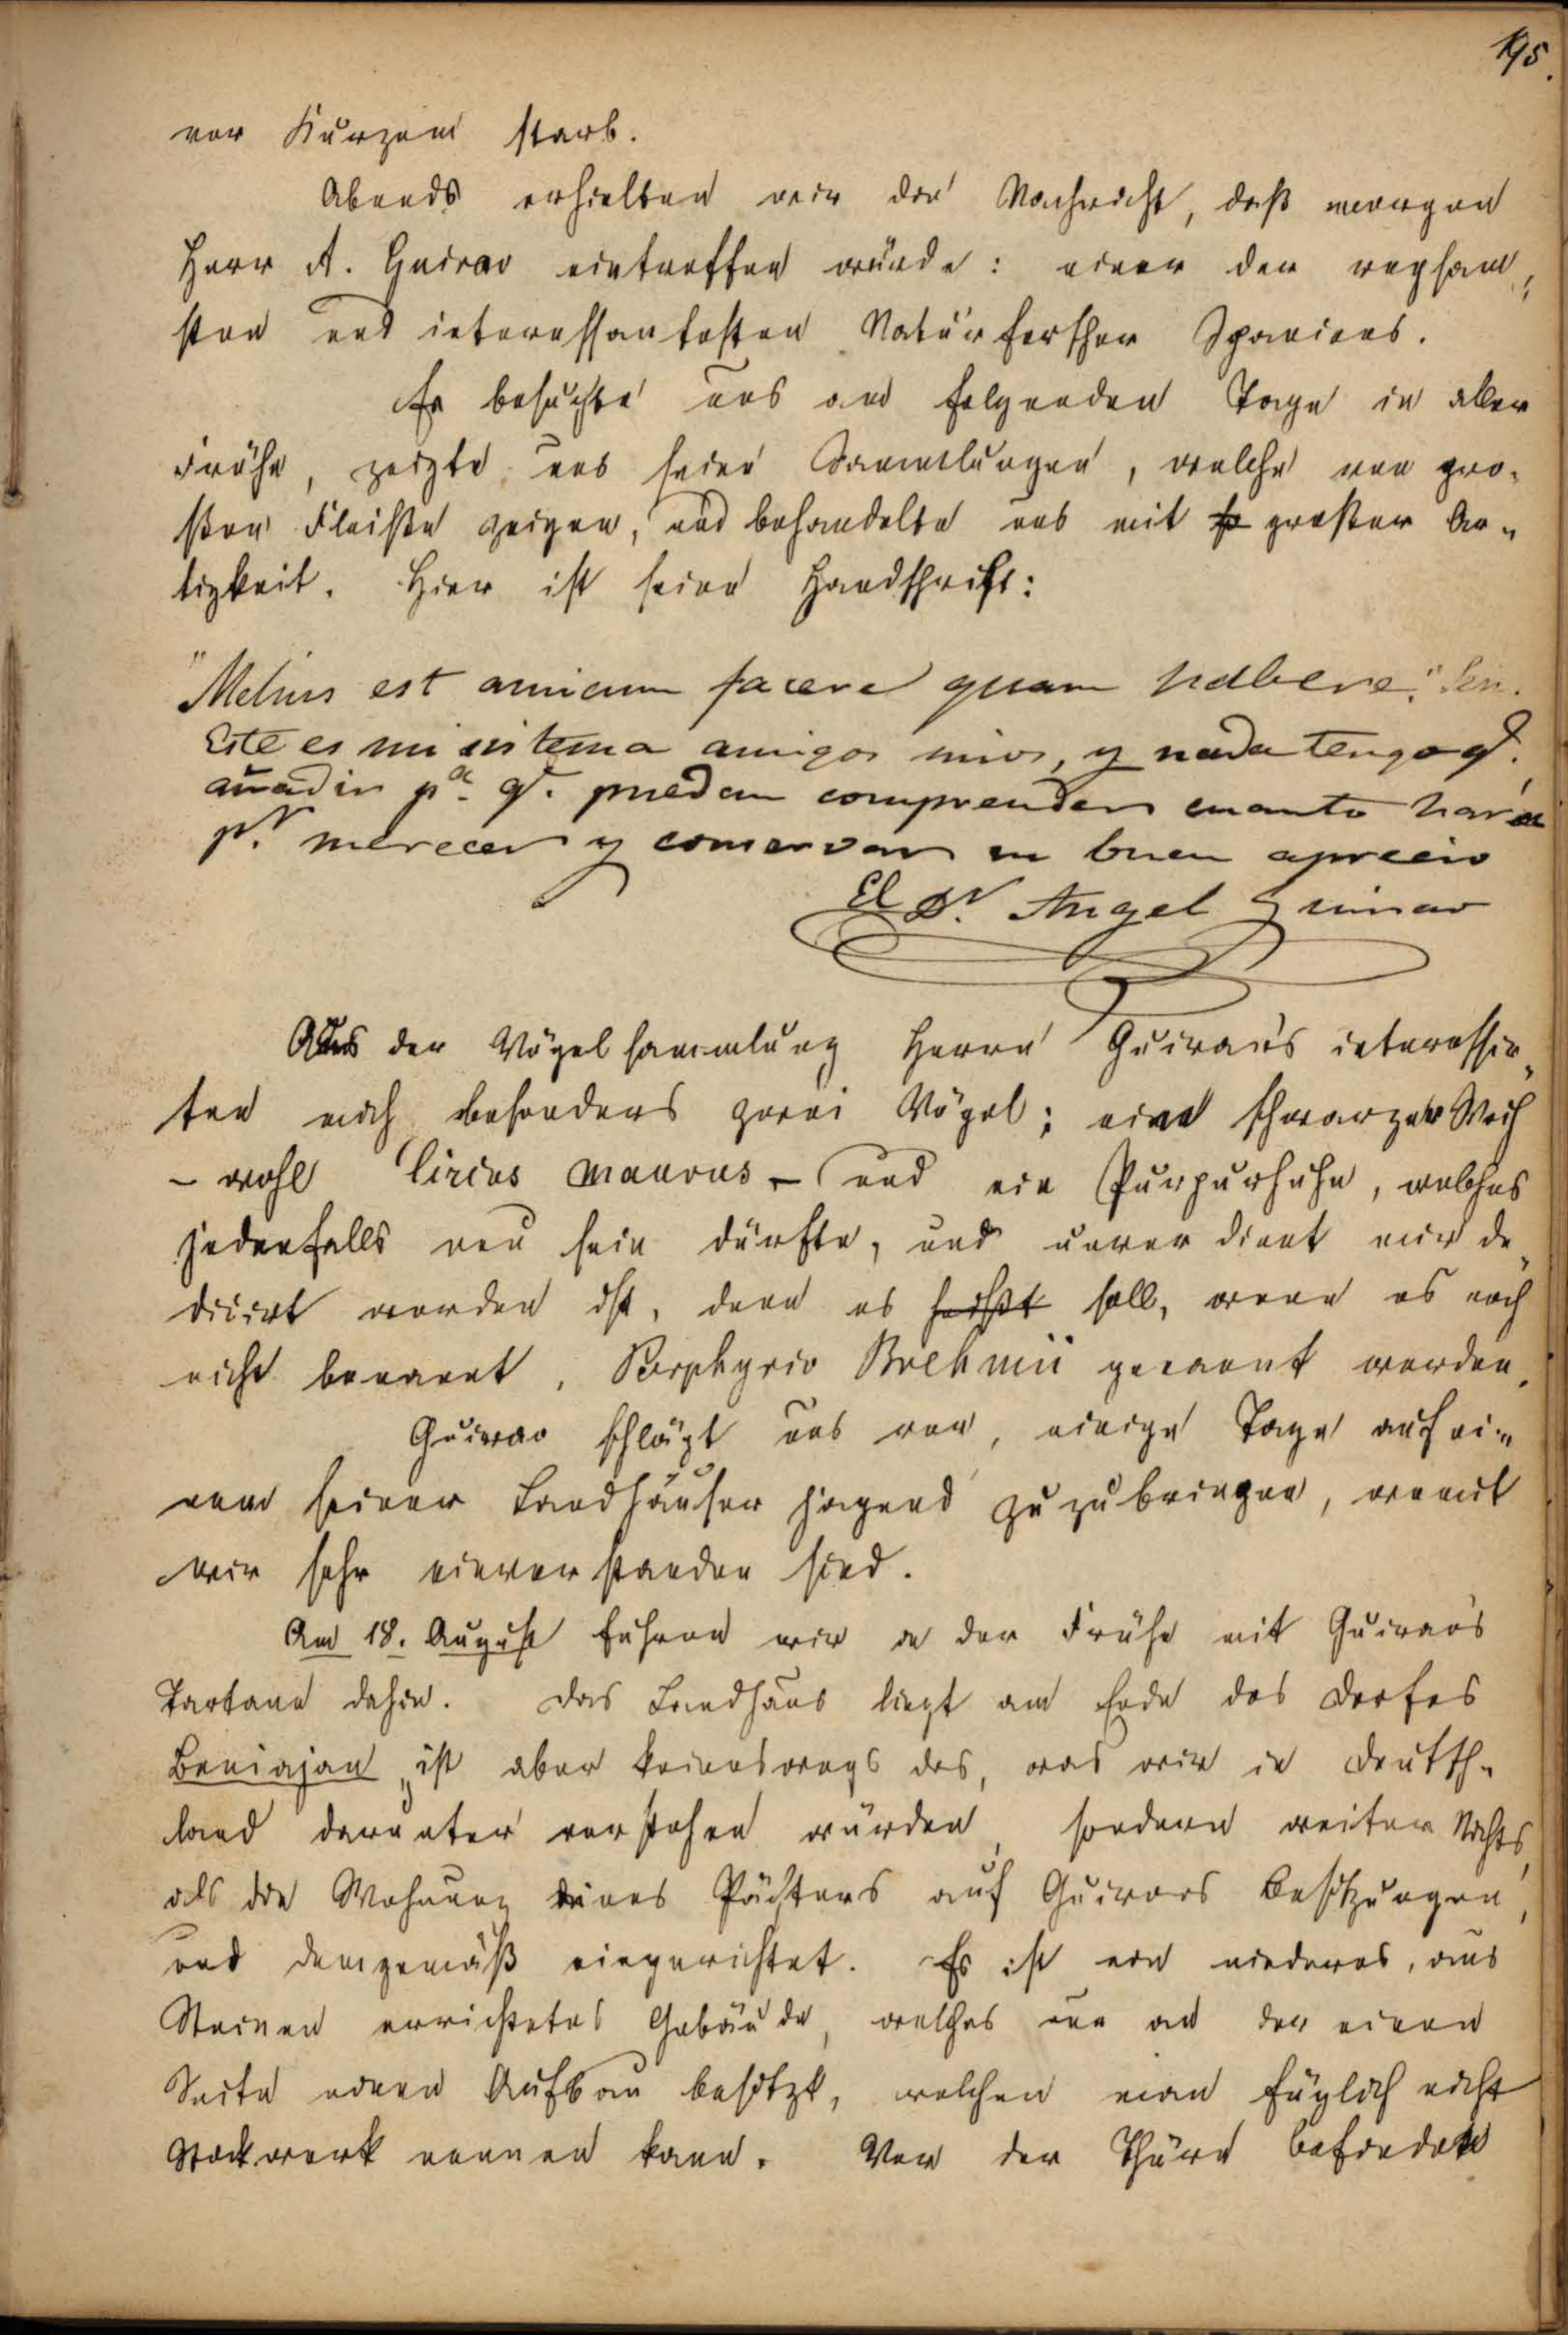 195.
vor Kurzem starb.
Abends erhielten wir die Nachricht, daß morgen
Herr A. Guirao eintreffen würde: einer der regsam-
sten und interessantesten Naturforscher Spaniens.
Er besuchte uns am folgenden Tage in aller
Frühe, zeigte uns seine Sammlungen, welche von gro-
ßem Fleiße zeigen, und behandelte uns mit großer Ar-
tigkeit. Hier ist seine Handschrift:
"Melius est amicum facere quam habere." Sen.
Este es mi sistema amigos mios, y nada tengo q.e
añadir p.a q.e puedan comprender cuanto hará
p.r merecer y conservar su buen aprecio
El D.r Angel Guirao
Aus der Vögelsammlung Herrn Guirao's interessir-
ten mich besonders zwei Vögel; eine schwarze Weih
– wohl Circus maurus – und ein Purpurhuhn, welches
jedenfalls neu sein dürfte, und unverdient mir de-
dicirt worden ist, denn es heißt soll, wenn es noch
nicht benannt, Porphyrio Brehmii genannt werden.
Guirao schlägt uns vor, einige Tage auf ei-
nem seiner Landhäuser jagend zuzubringen, womit
wir sehr einverstanden sind.
Am 18. August fuhren wir in der Frühe mit Guirao's
Tartane dahin. Das Landhaus liegt am Ende des Dorfes
Beniajan, ist aber keineswegs das, was wir in Deutsch-
land darunter verstehen würden, sondern weiter Nichts,
als die Wohnung eines Pächters auf Guiraos Besitzungen,
und demgemäß eingerichtet. Es ist ein niederes, aus
Steinen errichtetes Gebäude, welches nur an der einen
Seite einen Aufbau besitzt, welchen man füglich nicht
Stockwerk nennen kann. Vor der Thüre befindet